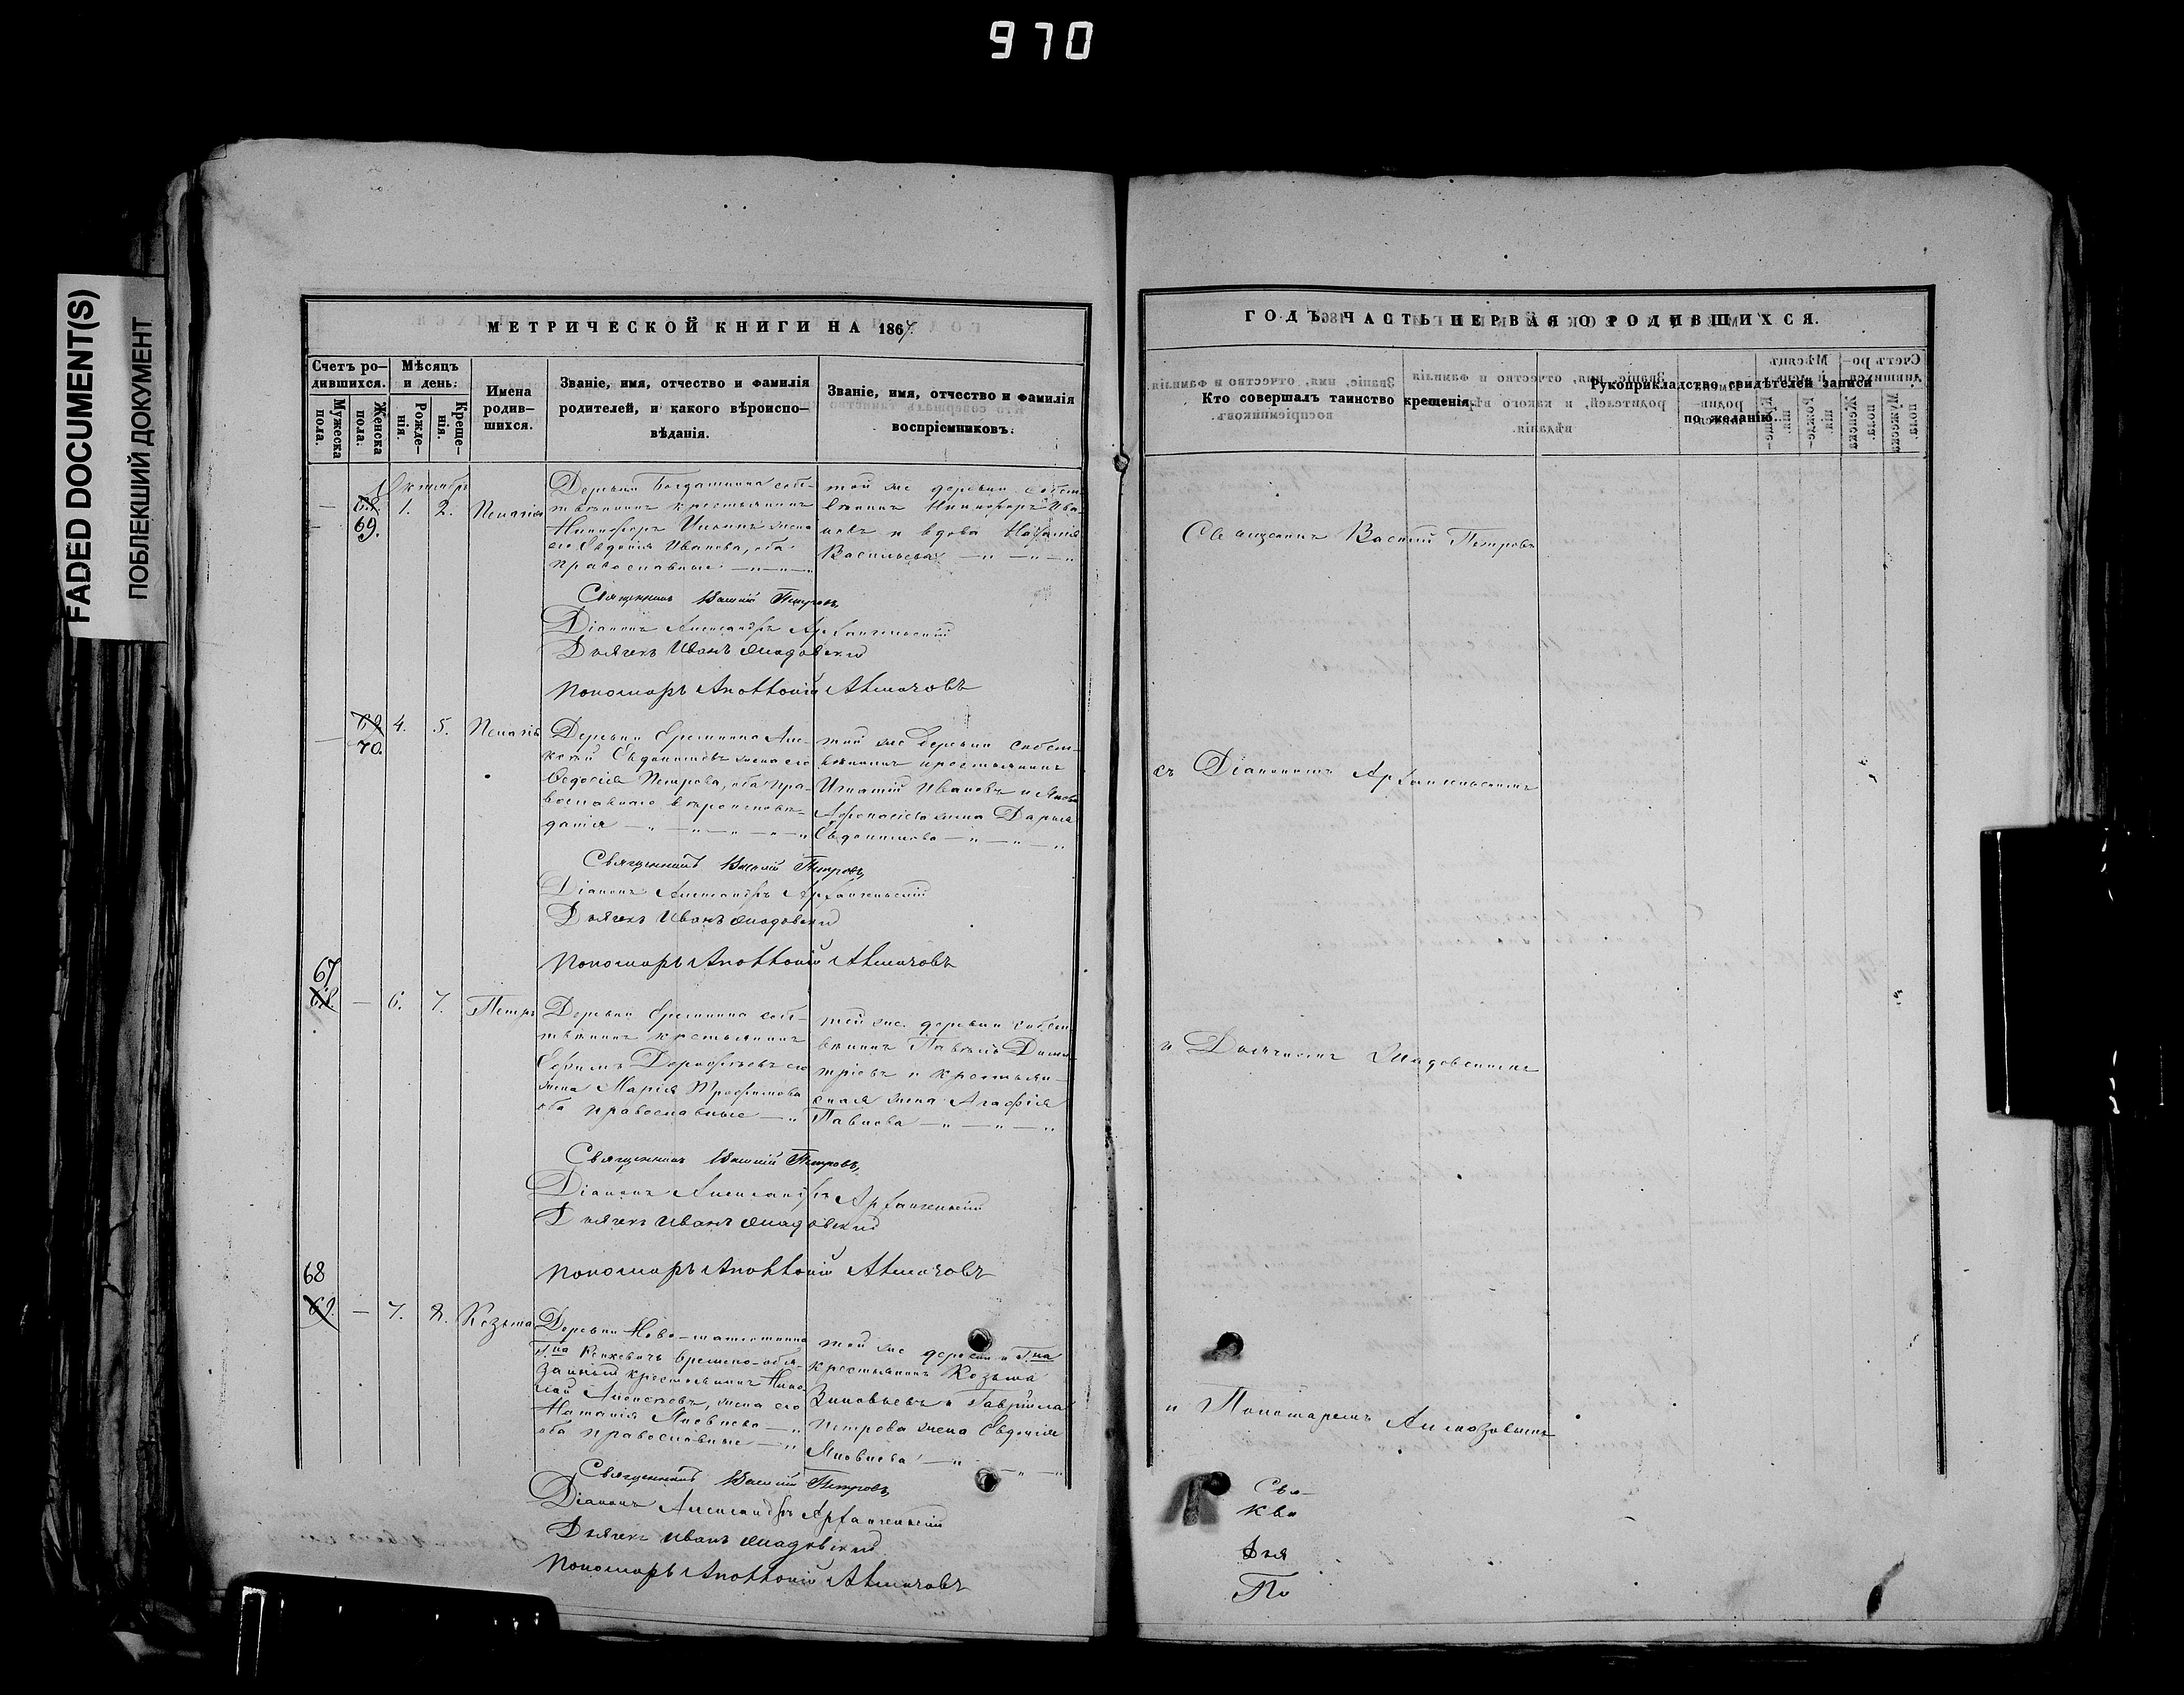 970
FADED DOCUMENT(S)
ПОБЛЕКШИЙ ДОКУМЕНТ
МЕТРИЧЕСКОЙ КНИГИ НА 1867.
Счетъ ро-
дившихся.
Мужеска
пола.
Женска
пола.
Мѣсяцъ
и день:
Рожде-
нія.
Креще-
нія.
Имена
родив-
шихся.
Званіе, имя, отчество и фамилія
родителей, и какого вѣроиспо-
вѣданія.
Званіе, имя, отчество и фамилія
воспріемниковъ.
Октябрь
— 69. 1. 2. Пелагія
Деревни соб-
ственникъ крестьянинъ
Никифоръ жена
его Евдокія Иванова, оба
православные
той же деревни собст-
венникъ Никифоръ Ива-
новъ и вдова Наталія
Васильева
Священникъ Василій Петровъ
Діаконъ Александръ Архангельскій
Дьячекъ Иванъ
Пономарь Алмазовъ
— 70. 4. 5. Пелагія
Деревни Еремкина Але-
ксѣй Евдокимовъ жена его
Ѳедосія Петрова, оба пра-
вославнаго вѣроисповѣ-
данія
той же деревни собст-
венникъ крестьянинъ
Игнатій Ивановъ и
жена Дарья
Евдокимова
Священникъ Василій Петровъ
Діаконъ Александръ Архангельскій
Дьячекъ Иванъ
Пономарь Алмазовъ
67
— 6. 7. Петръ
Деревни Еремкина соб-
ственникъ крестьянинъ
Ефимъ Дорофѣевъ его
жена Марія Трофимова
оба православные
той же деревни собст-
венникъ Павелъ Дими-
тріевъ и крестьян-
ская жена Агафія
Павлова
Священникъ Василій Петровъ
Діаконъ Александръ Архангельскій
Дьячекъ Иванъ
Пономарь Алмазовъ
68
— 7. 8. Козьма
Деревни
временно-обя-
занный крестьянинъ Нико-
лай Алексѣевъ, жена его
Наталія Яковлева
оба православные
той же деревни и
крестьянинъ Козьма
Зиновьевъ и Гавріила
Петрова жена Евдокія
Яковлева
Священникъ Василій Петровъ
Діаконъ Александръ Архангельскій
Дьячекъ Иванъ
Пономарь Алмазовъ
ГОДЪ ЧАСТЬ ПЕРВАЯ О РОДИВШИХСЯ.
Кто совершалъ таинство крещенія.
Рукоприкладство свидѣтелей записи
по желанію.
Священникъ Василій Петровъ
съ Діакономъ Архангельскимъ
и Дьячкомъ
и Пономаремъ Алмазовымъ
Свя-
Дья
По